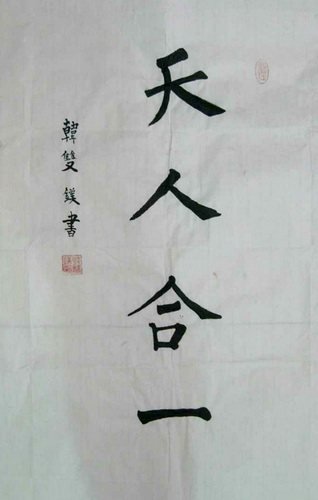 天人合一
韓雙鎂書